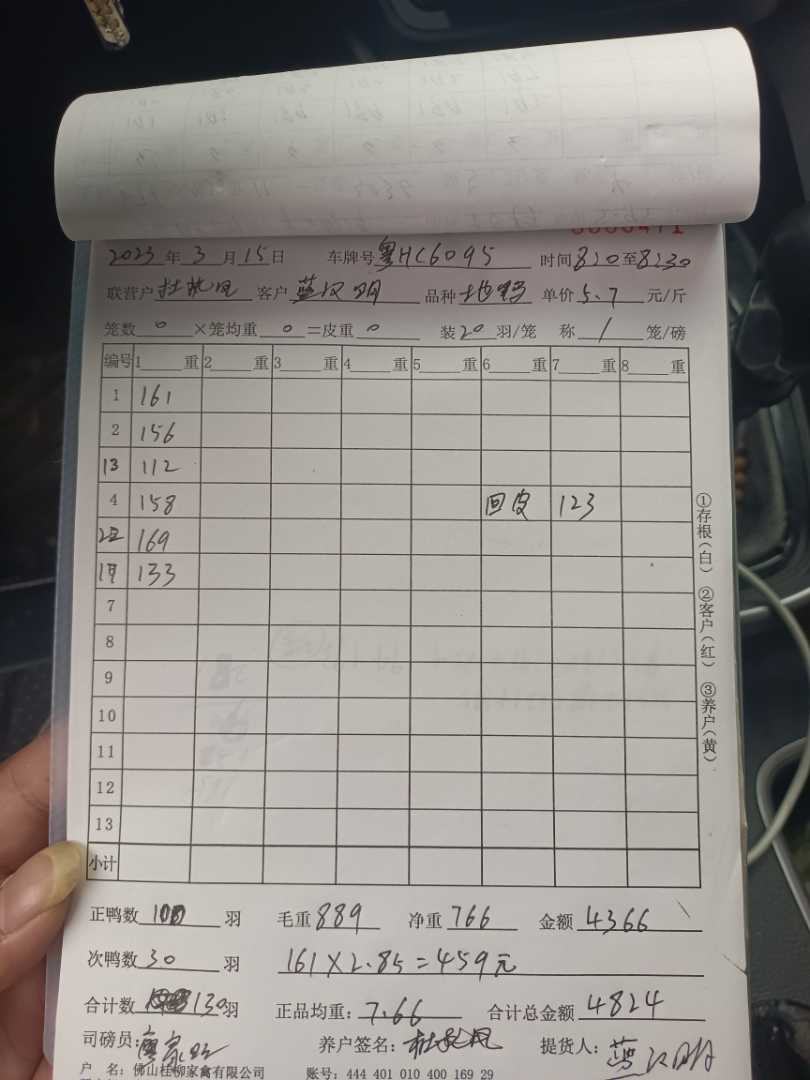 2023 年 3 月 15 日 车牌号 粤HC6095 时间 8:20 至 8:30
联营户 客户 蓝汉明 品种 单价 5.7 元/斤
笼数 0 ×笼均重 0 =皮重 0 装 20 羽/笼 称 1 笼/磅
编号 1 重 2 重 3 重 4 重 5 重 6 重 7 重 8 重
1 161
2 156
13 112
4 158 回皮 123
169
133
7
8
9
10
11
12
13
小计
正鸭数 100 羽 毛重 889 净重 766 金额 4366
次鸭数 30 羽 161×2.85=459元
合计数 130 羽 正品均重: 7.66 合计总金额 4824
司磅员: 养户签名: 提货人: 蓝汉明
户 名: 佛山桂柳家禽有限公司 账号: 444 401 010 400 169 29
①存根(白) ②客户(红) ③养户(黄)